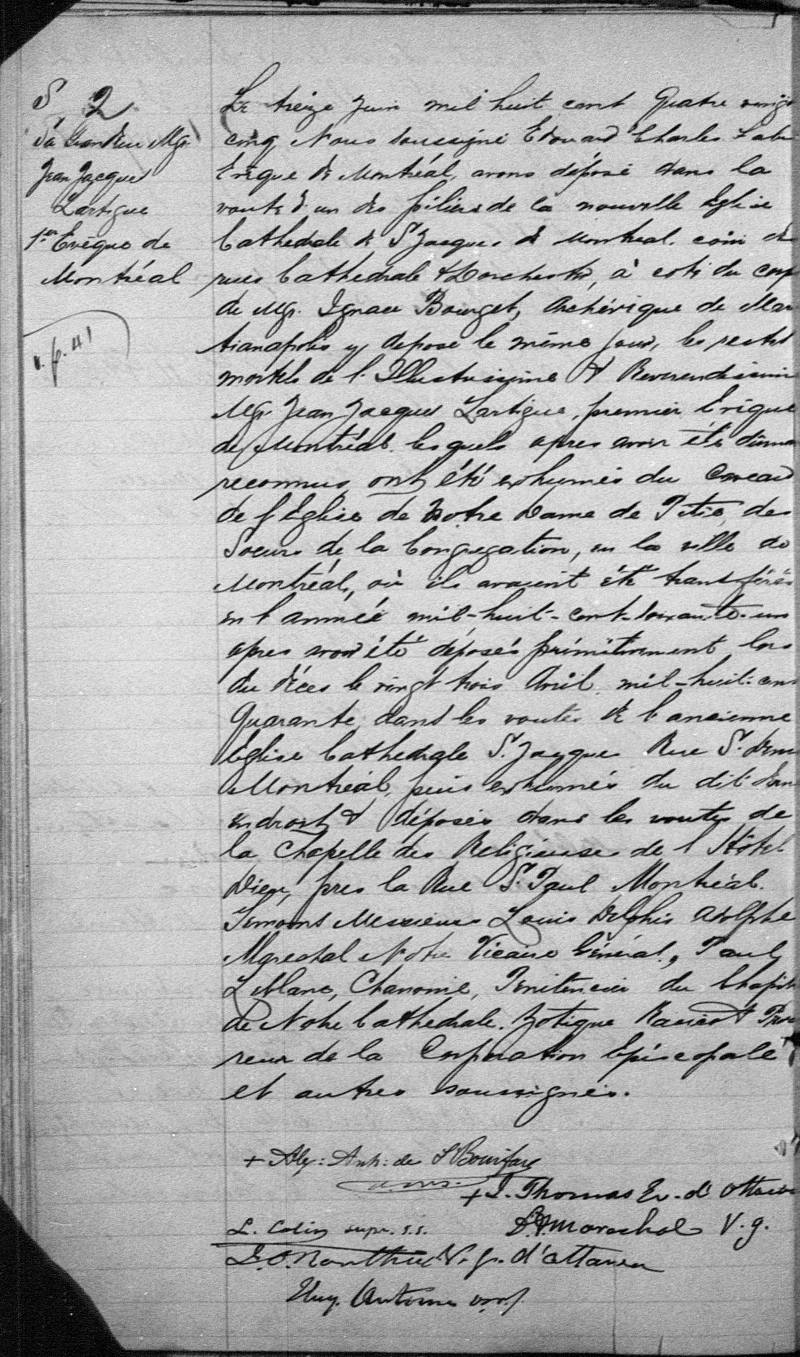 S 2
Sa Grandeur Mgr
Jean Jacques
Lartigue
1er Evêque de
Montréal
v. f. 41
Le treize Juin mil huit cent Quatre vingt
cinq Nous soussigné Edouard Charles Fabre
Evêque de Montréal, avons déposé dans la
voute d'un des piliers de la nouvelle Eglise
Cathédrale de St Jacques de Montréal, coin des
rues Cathédrale & Dorchester, à coté du corps
de Mgr. Ignace Bourget, Archévêque de Mar
tianapolis y déposé le même jour, les restes
mortels de l'Illustrissime & Reverendissime
Mgr Jean Jacques Lartigue, premier Evêque
de Montréal. lesquels après avoir été dûment
reconnus ont été exhumés du Caveau
de l'Eglise de Notre Dame de Pitié, des
Soeurs de la Congrégation, en la ville de
Montréal, où ils avaient été transférés
en l'année mil-huit-cent-soixante-un
après avoir été déposés primitivement, lors
du décès le vingt trois Avril mil-huit-cent
Quarante, dans les voutes de l'ancienne
Eglise Cathédrale St. Jacques Rue St. Denis
Montréal, puis exhumés du dit
endroit & déposés dans les voutes de
la Chapelle des Religieuses de l'Hôtel
Dieu, près la Rue St. Paul Montréal.
Témoins Messieurs Louis Delphis Adolphe
Marechal Notre Vicaire Général, Paul
Leblanc, Chanoine, Pénitencier du Chapitre
de Notre Cathédrale. Zotique Racicot Procu
reur de la Corporation Episcopale
et autres soussignés.
+ Alex: Arch: de St Boniface
o.m.i.
+ J. Thomas Ev. d'Ottawa
L. Colin supr. s.s.
L.D.A. Marechal V. g.
J. O. Routhier V. g. d'Ottawa
Hug. Antoine